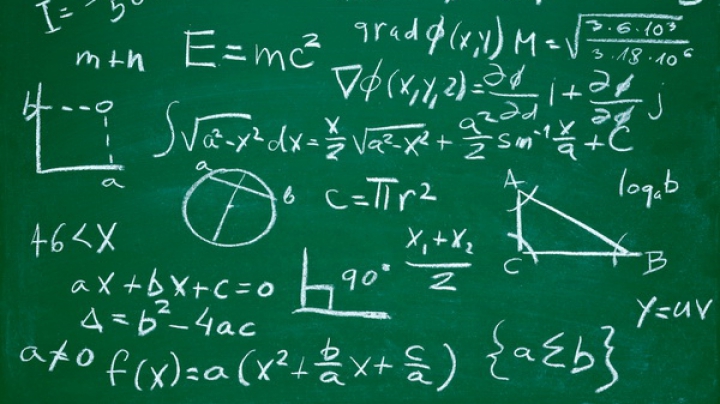 m+n
E=mc²
grad ϕ(x,y) M=√(3·6·10³/3·18·10⁶)
∇ϕ(x,y,z)=∂ϕ/∂d i+∂ϕ/∂ϕ j
b
∫√a²-x² dx=x/2 √a²-x²+a²/2 sin⁻¹ x/a+C
a
a
b
c=πr²
A
logₐb
46<X
x₁+x₂/2
C
B
ax+bx+c=0
90°
Δ=b²-4ac
y=uv
a≠0 f(x)=a(x²+b/a x+c/a)
{a≤b}